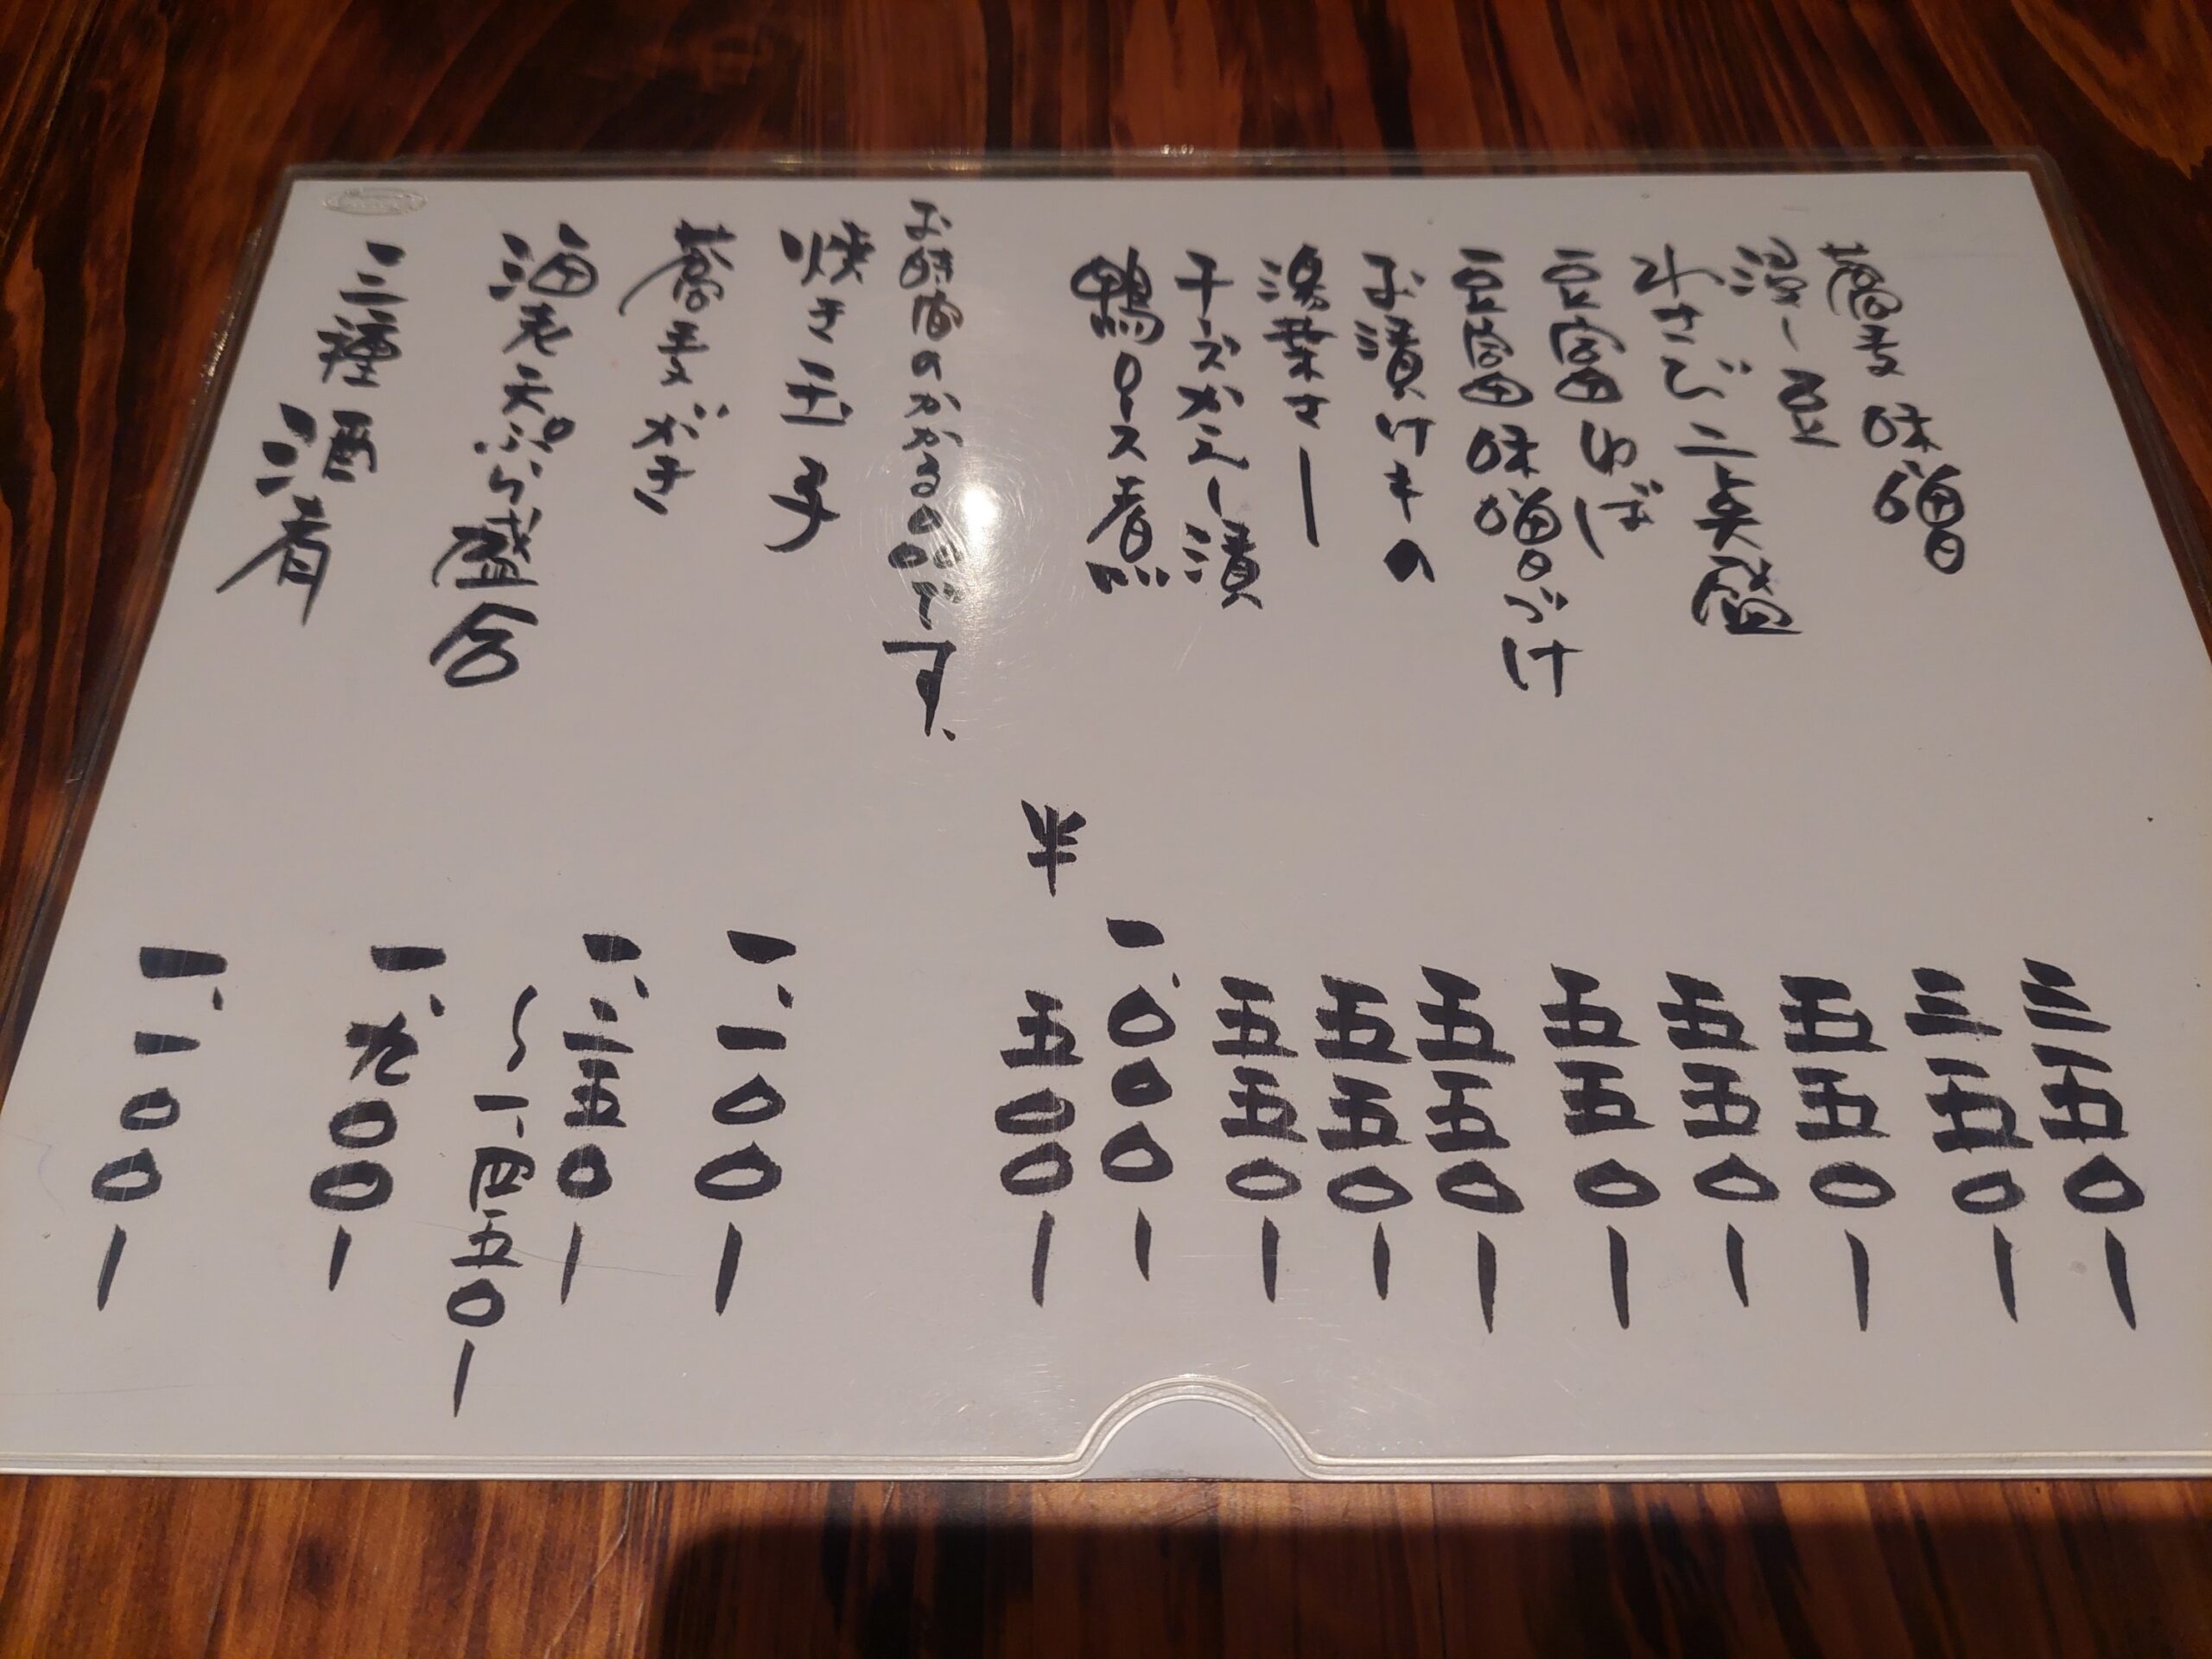 蕎麦味噌 三五〇ー
浸し豆 三五〇ー
わさび二点盛 五五〇ー
豆富ゆば 五五〇ー
豆富味噌づけ 五五〇ー
お漬けもの 五五〇ー
湯葉さし 五五〇ー
チーズかえし漬 五五〇ー
鴨ロース煮 一、〇〇〇ー
半 五〇〇ー
お時間のかかる品です、
焼き玉子 一、一〇〇ー
蕎麦がき 一、二五〇ー
〜一、四五〇ー
海老天ぷら盛合 一、九〇〇ー
三種酒肴 一、一〇〇ー